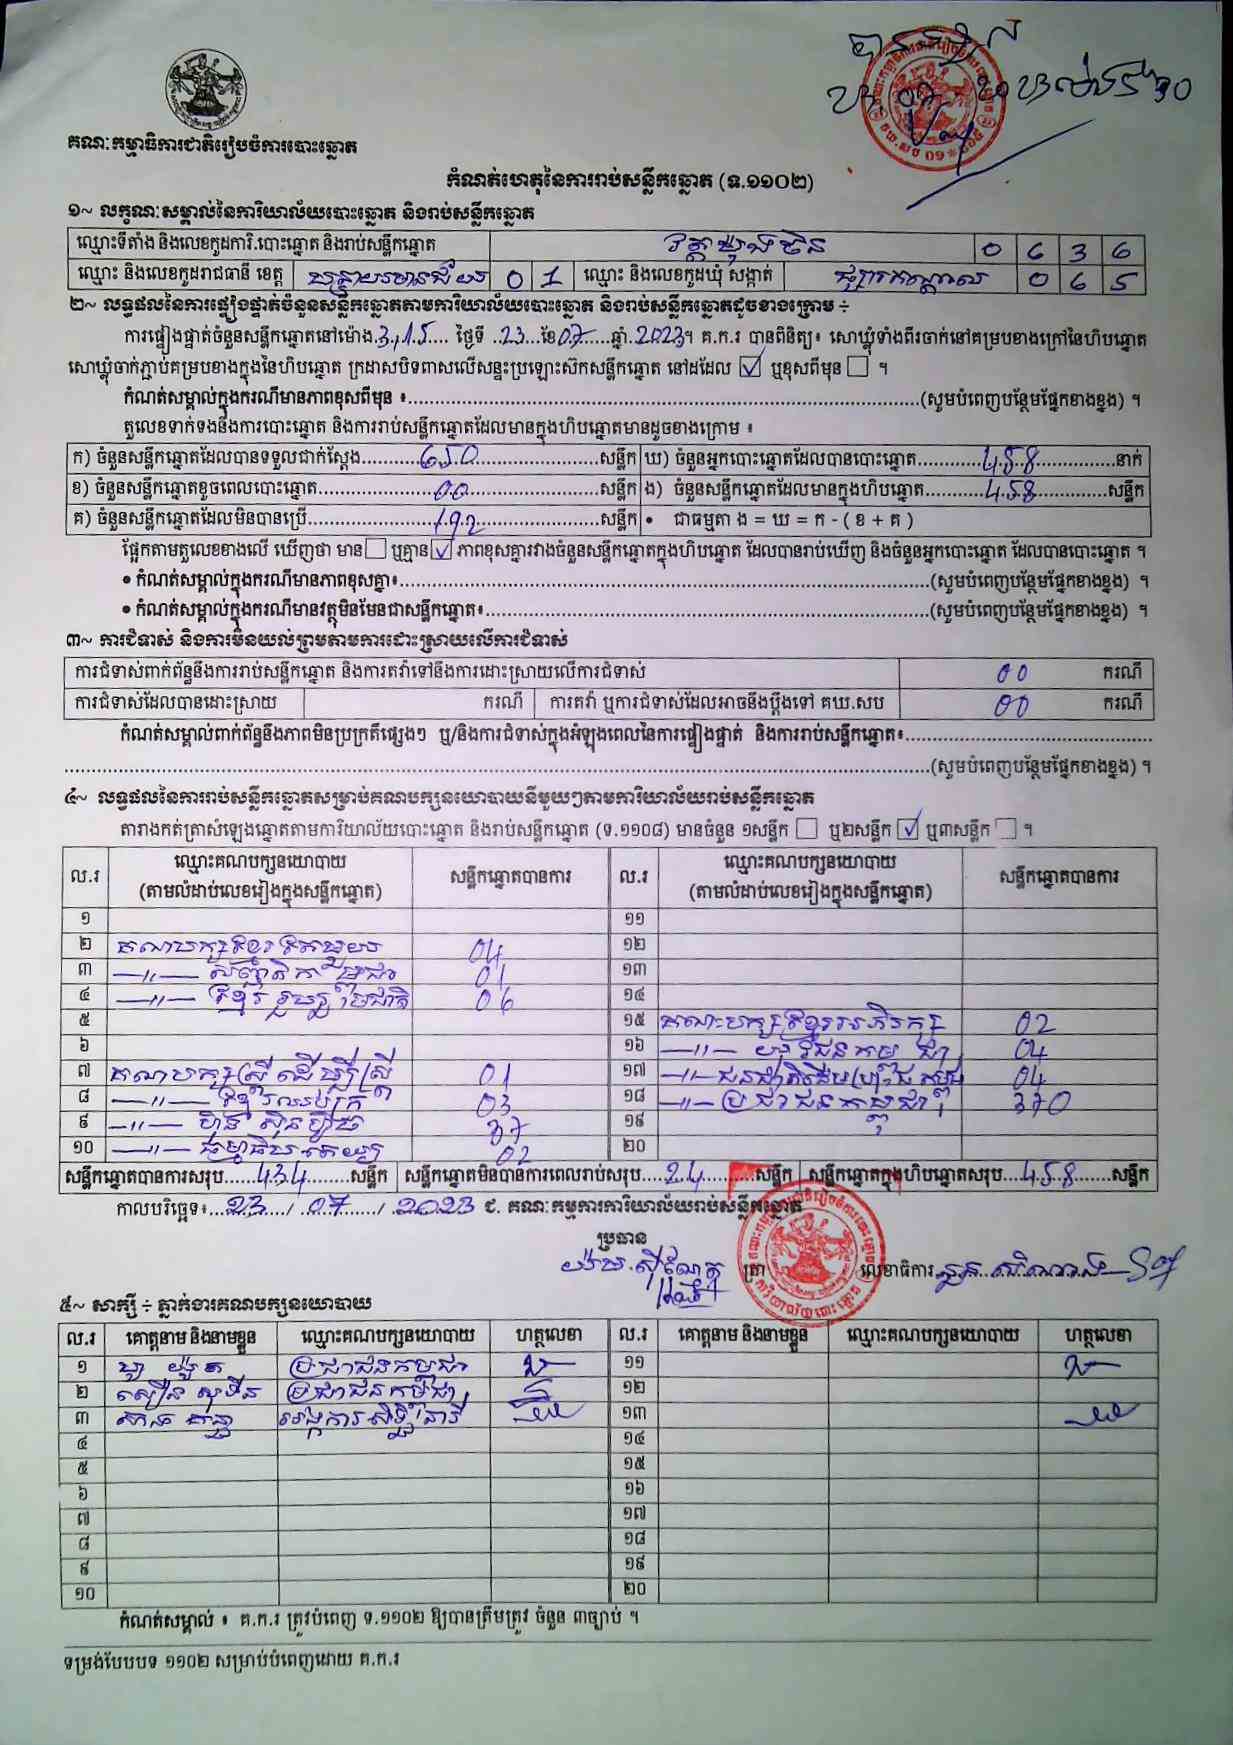 គណៈកម្មាធិការជាតិរៀបចំការបោះឆ្នោត
កំណត់ហេតុនៃការរាប់សន្លឹកឆ្នោត (ទ.១១០២)
១~ លក្ខណៈសម្គាល់នៃការិយាល័យបោះឆ្នោត និងរាប់សន្លឹកឆ្នោត
ឈ្មោះទីតាំង និងលេខកូដការិ.បោះឆ្នោត និងរាប់សន្លឹកឆ្នោត 0 6 3 6
ឈ្មោះ និងលេខកូដរាជធានី ខេត្ត បន្ទាយមានជ័យ 0 1 ឈ្មោះ និងលេខកូដឃុំ សង្កាត់ ផ្សារកណ្តាល 0 6 5
២~ លទ្ធផលនៃការផ្ទៀងផ្ទាត់ចំនួនសន្លឹកឆ្នោតតាមការិយាល័យបោះឆ្នោត និងរាប់សន្លឹកឆ្នោតដូចខាងក្រោម ÷
ការផ្ទៀងផ្ទាត់ចំនួនសន្លឹកឆ្នោតនៅម៉ោង.3.15.... ថ្ងៃទី ..23...ខែ07.....ឆ្នាំ.2023។ គ.ក.រ បានពិនិត្យ៖ សោឃ្លុំទាំងពីរចាក់នៅគម្របខាងក្រៅនៃហិបឆ្នោត
សោឃ្លុំចាក់ភ្ជាប់គម្របខាងក្នុងនៃហិបឆ្នោត ក្រដាសបិទពាសលើសន្ទះប្រឡោះស៊កសន្លឹកឆ្នោត នៅដដែល ☑ ឬខុសពីមុន ☐ ។
កំណត់សម្គាល់ក្នុងករណីមានភាពខុសពីមុន ៖..........(សូមបំពេញបន្ថែមផ្នែកខាងខ្នង) ។
តួលេខទាក់ទងនឹងការបោះឆ្នោត និងការរាប់សន្លឹកឆ្នោតដែលមានក្នុងហិបឆ្នោតមានដូចខាងក្រោម ៖
ក) ចំនួនសន្លឹកឆ្នោតដែលបានទទួលជាក់ស្តែង..........650..........សន្លឹក ឃ) ចំនួនអ្នកបោះឆ្នោតដែលបានបោះឆ្នោត..........458..........នាក់
ខ) ចំនួនសន្លឹកឆ្នោតខូចពេលបោះឆ្នោត..........00..........សន្លឹក ង) ចំនួនសន្លឹកឆ្នោតដែលមានក្នុងហិបឆ្នោត..........458..........សន្លឹក
គ) ចំនួនសន្លឹកឆ្នោតដែលមិនបានប្រើ..........192..........សន្លឹក • ជាធម្មតា ង = ឃ = ក - ( ខ + គ )
ផ្អែកតាមតួលេខខាងលើ ឃើញថា មាន ☐ ឬគ្មាន ☑ ភាពខុសគ្នារវាងចំនួនសន្លឹកឆ្នោតក្នុងហិបឆ្នោត ដែលបានរាប់ឃើញ និងចំនួនអ្នកបោះឆ្នោត ដែលបានបោះឆ្នោត ។
• កំណត់សម្គាល់ក្នុងករណីមានភាពខុសគ្នា៖..........(សូមបំពេញបន្ថែមផ្នែកខាងខ្នង) ។
• កំណត់សម្គាល់ក្នុងករណីមានវត្ថុមិនមែនជាសន្លឹកឆ្នោត៖..........(សូមបំពេញបន្ថែមផ្នែកខាងខ្នង) ។
៣~ ការជំទាស់ និងការមិនយល់ព្រមតាមការដោះស្រាយលើការជំទាស់
ការជំទាស់ពាក់ព័ន្ធនឹងការរាប់សន្លឹកឆ្នោត និងការតវ៉ាទៅនឹងការដោះស្រាយលើការជំទាស់ 00 ករណី
ការជំទាស់ដែលបានដោះស្រាយ ករណី ការតវ៉ា ឬការជំទាស់ដែលអាចនឹងប្តឹងទៅ គឃ.សប 00 ករណី
កំណត់សម្គាល់ពាក់ព័ន្ធនឹងភាពមិនប្រក្រតីផ្សេងៗ ឬ/និងការជំទាស់ក្នុងអំឡុងពេលនៃការផ្ទៀងផ្ទាត់ និងការរាប់សន្លឹកឆ្នោត៖..........
..........(សូមបំពេញបន្ថែមផ្នែកខាងខ្នង) ។
៤~ លទ្ធផលនៃការរាប់សន្លឹកឆ្នោតសម្រាប់គណបក្សនយោបាយនីមួយៗតាមការិយាល័យរាប់សន្លឹកឆ្នោត
តារាងកត់ត្រាសំឡេងឆ្នោតតាមការិយាល័យបោះឆ្នោត និងរាប់សន្លឹកឆ្នោត (ទ.១១០៨) មានចំនួន ១សន្លឹក ☐ ឬ២សន្លឹក ☑ ឬ៣សន្លឹក ☐ ។
ល.រ ឈ្មោះគណបក្សនយោបាយ (តាមលំដាប់លេខរៀងក្នុងសន្លឹកឆ្នោត) សន្លឹកឆ្នោតបានការ ល.រ ឈ្មោះគណបក្សនយោបាយ (តាមលំដាប់លេខរៀងក្នុងសន្លឹកឆ្នោត) សន្លឹកឆ្នោតបានការ
១ ១១
២ គណបក្សខ្មែរតែមួយ 04 ១២
៣ —〃— សញ្ជាតិកម្ពុជា 01 ១៣
៤ —〃— ខ្មែររួបរួមជាតិ 06 ១៤
៥ ១៥ គណបក្សខ្មែរអភិរក្ស 02
៦ ១៦ —〃— យុវជនកម្ពុជា 04
៧ គណបក្សស្ត្រីដើម្បីស្ត្រី 01 ១៧ —〃— ជនជាតិដើមប្រជាធិបតេយ្យកម្ពុជា 04
៨ —〃— 03 ១៨ —〃— ប្រជាជនកម្ពុជា 370
៩ —〃— ហ៊្វុនស៊ិនប៉ិច 37 ១៩
១០ —〃— ធម្មាធិបតេយ្យ 02 ២០
សន្លឹកឆ្នោតបានការសរុប.....434.....សន្លឹក សន្លឹកឆ្នោតមិនបានការពេលរាប់សរុប.....24.....សន្លឹក សន្លឹកឆ្នោតក្នុងហិបឆ្នោតសរុប.....458.....សន្លឹក
កាលបរិច្ឆេទ៖...23.../...07.../...2023 ជ. គណៈកម្មការការិយាល័យរាប់សន្លឹកឆ្នោត
ប្រធាន
ត្រា លេខាធិការ
៥~ សាក្សី ÷ ភ្នាក់ងារគណបក្សនយោបាយ
ល.រ គោត្តនាម និងនាមខ្លួន ឈ្មោះគណបក្សនយោបាយ ហត្ថលេខា ល.រ គោត្តនាម និងនាមខ្លួន ឈ្មោះគណបក្សនយោបាយ ហត្ថលេខា
១ ប្រជាជនកម្ពុជា ១១
២ ប្រជាជនកម្ពុជា ១២
៣ អង្គការសិទ្ធិនារី ១៣
៤ ១៤
៥ ១៥
៦ ១៦
៧ ១៧
៨ ១៨
៩ ១៩
១០ ២០
កំណត់សម្គាល់ ៖ គ.ក.រ ត្រូវបំពេញ ទ.១១០២ ឱ្យបានត្រឹមត្រូវ ចំនួន ៣ច្បាប់ ។
ទម្រង់បែបបទ ១១០២ សម្រាប់បំពេញដោយ គ.ក.រ